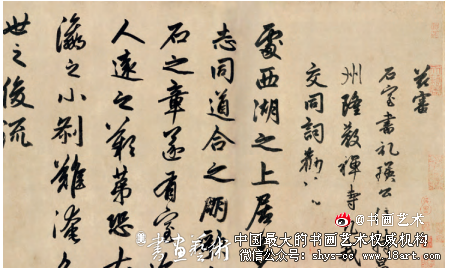 兹審
石室書記瑛公
州隆教禪寺凡我
交同詞勸
處西湖之上居
志同道合之朋
石之章遂有室
人遠之歎第恐大
瀛之小剎難淹
世之俊流
@书画艺术
書畫藝術
中国最大的书画艺术权威机构
微信公众名：shys-cc www.18art.com